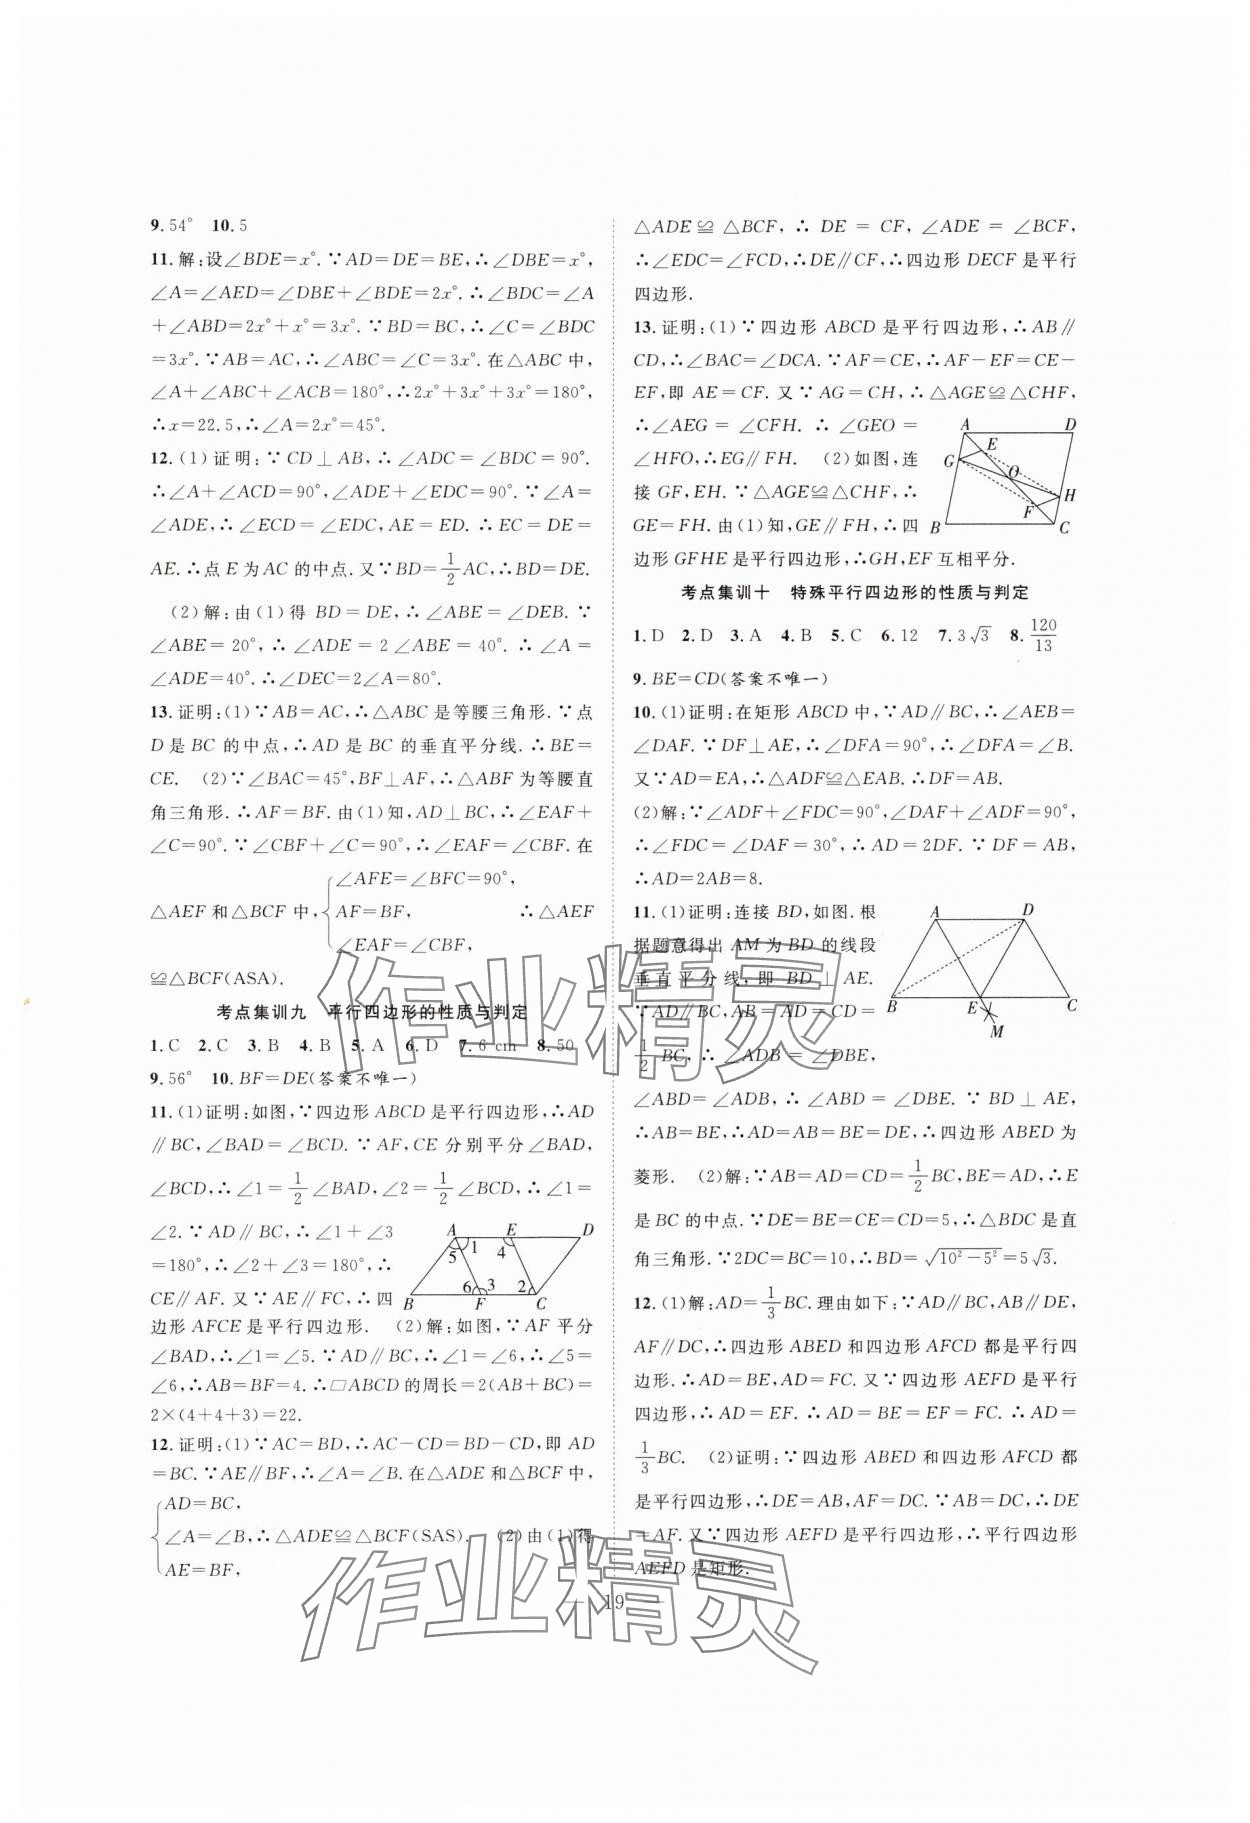 9.54°  10.5
11.解:设∠BDE=x°.∵AD=DE=BE,∴∠DBE=x°,
∠A=∠AED=∠DBE+∠BDE=2x°.∴∠BDC=∠A
+∠ABD=2x°+x°=3x°.∵BD=BC,∴∠C=∠BDC
=3x°.∵AB=AC,∴∠ABC=∠C=3x°.在△ABC中,
∠A+∠ABC+∠ACB=180°,∴2x°+3x°+3x°=180°,
∴x=22.5,∴∠A=2x°=45°.
12.(1)证明:∵CD⊥AB,∴∠ADC=∠BDC=90°.
∴∠A+∠ACD=90°,∠ADE+∠EDC=90°.∵∠A=
∠ADE,∴∠ECD=∠EDC,AE=ED.∴EC=DE=
AE.∴点E为AC的中点.又∵BD=1/2AC,∴BD=DE.
(2)解:由(1)得BD=DE,∴∠ABE=∠DEB.∵
∠ABE=20°,∴∠ADE=2∠ABE=40°.∴∠A=
∠ADE=40°.∴∠DEC=2∠A=80°.
13.证明:(1)∵AB=AC,∴△ABC是等腰三角形.∵点
D是BC的中点,∴AD是BC的垂直平分线.∴BE=
CE.  (2)∵∠BAC=45°,BF⊥AF,∴△ABF为等腰直
角三角形.∴AF=BF.由(1)知,AD⊥BC,∴∠EAF+
∠C=90°.∵∠CBF+∠C=90°,∴∠EAF=∠CBF.在
∠AFE=∠BFC=90°,
△AEF和△BCF中,{AF=BF,  ∴△AEF
∠EAF=∠CBF,
≌△BCF(ASA).
考点集训九  平行四边形的性质与判定
1.C  2.C  3.B  4.B  5.A  6.D  7.6 cm  8.50
9.56°  10.BF=DE(答案不唯一)
11.(1)证明:如图,∵四边形ABCD是平行四边形,∴AD
∥BC,∠BAD=∠BCD.∵AF,CE分别平分∠BAD,
∠BCD,∴∠1=1/2∠BAD,∠2=1/2∠BCD,∴∠1=
∠2.∵AD∥BC,∴∠1+∠3
=180°,∴∠2+∠3=180°,∴
CE∥AF.又∵AE∥FC,∴四
A E D
5 1 4
6 3 2
B F C
边形AFCE是平行四边形.  (2)解:如图,∵AF平分
∠BAD,∴∠1=∠5.∵AD∥BC,∴∠1=∠6,∴∠5=
∠6,∴AB=BF=4.∴□ABCD的周长=2(AB+BC)=
2×(4+4+3)=22.
12.证明:(1)∵AC=BD,∴AC-CD=BD-CD,即AD
=BC.∵AE∥BF,∴∠A=∠B.在△ADE和△BCF中,
AD=BC,
{∠A=∠B,∴△ADE≌△BCF(SAS).  (2)由(1)得
AE=BF,
△ADE≌△BCF,∴DE=CF,∠ADE=∠BCF,
∴∠EDC=∠FCD,∴DE∥CF,∴四边形DECF是平行
四边形.
13.证明:(1)∵四边形ABCD是平行四边形,∴AB∥
CD,∴∠BAC=∠DCA.∵AF=CE,∴AF-EF=CE-
EF,即AE=CF.又∵AG=CH,∴△AGE≌△CHF,
∴∠AEG=∠CFH.∴∠GEO=
∠HFO,∴EG∥FH.  (2)如图,连
接GF,EH.∵△AGE≌△CHF,∴
GE=FH.由(1)知,GE∥FH,∴四
A D
E
G O
H
F
B C
边形GFHE是平行四边形,∴GH,EF互相平分.
考点集训十  特殊平行四边形的性质与判定
1.D  2.D  3.A  4.B  5.C  6.12  7.3√3  8.120/13
9.BE=CD(答案不唯一)
10.(1)证明:在矩形ABCD中,∵AD∥BC,∴∠AEB=
∠DAF.∵DF⊥AE,∴∠DFA=90°,∴∠DFA=∠B.
又∵AD=EA,∴△ADF≌△EAB.∴DF=AB.
(2)解:∵∠ADF+∠FDC=90°,∠DAF+∠ADF=90°,
∴∠FDC=∠DAF=30°,∴AD=2DF.∵DF=AB,
∴AD=2AB=8.
11.(1)证明:连接BD,如图.根
据题意得出AM为BD的线段
垂直平分线,即BD⊥AE.
∵AD∥BC,AB=AD=CD=
1/2BC,∴∠ADB=∠DBE,
A D
B E C
M
∠ABD=∠ADB,∴∠ABD=∠DBE.∵BD⊥AE,
∴AB=BE,∴AD=AB=BE=DE,∴四边形ABED为
菱形.  (2)解:∵AB=AD=CD=1/2BC,BE=AD,∴E
是BC的中点.∵DE=BE=CE=CD=5,∴△BDC是直
角三角形.∵2DC=BC=10,∴BD=√(10²-5²)=5√3.
12.(1)解:AD=1/3BC.理由如下:∵AD∥BC,AB∥DE,
AF∥DC,∴四边形ABED和四边形AFCD都是平行四
边形.∴AD=BE,AD=FC.又∵四边形AEFD是平行
四边形,∴AD=EF.∴AD=BE=EF=FC.∴AD=
1/3BC.  (2)证明:∵四边形ABED和四边形AFCD都
是平行四边形,∴DE=AB,AF=DC.∵AB=DC,∴DE
=AF.又∵四边形AEFD是平行四边形,∴平行四边形
AEFD是矩形.
作业精灵
作业精灵
19